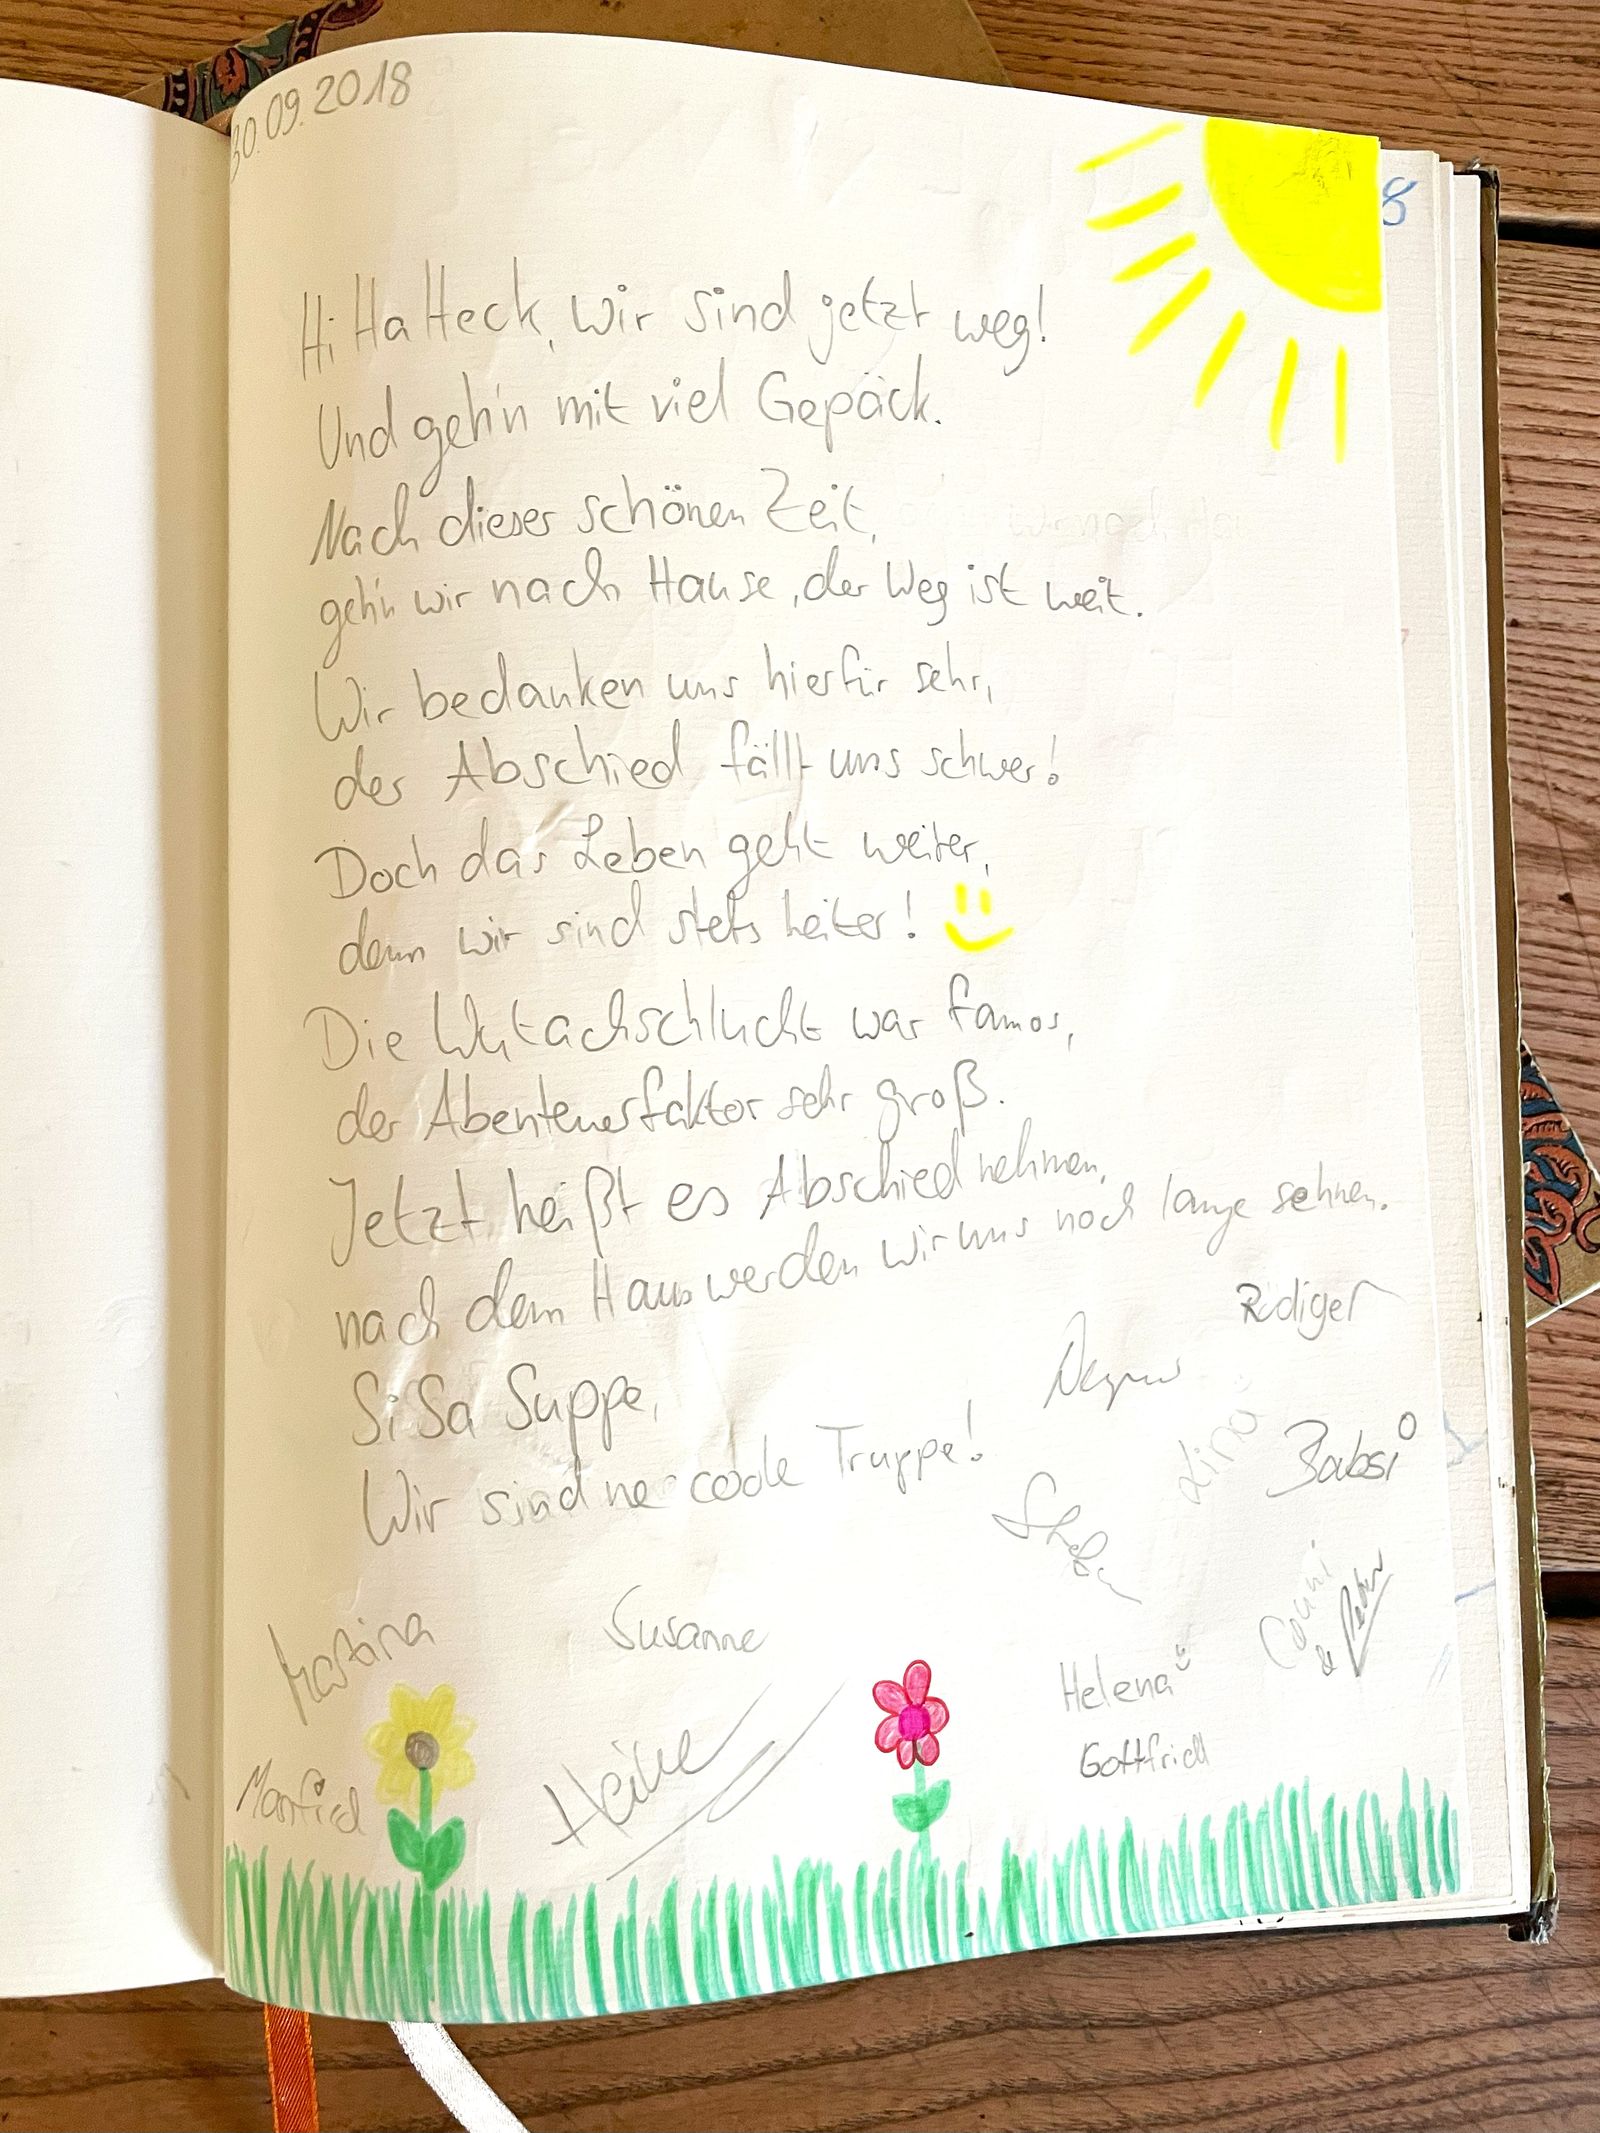 30.09.2018
8
Hi Ha Heck, wir sind jetzt weg!
Und geh'n mit viel Gepäck.
Nach dieser schönen Zeit,
geh'n wir nach Hause, der Weg ist weit.
Wir bedanken uns hierfür sehr,
der Abschied fällt uns schwer!
Doch das Leben geht weiter,
denn wir sind stets heiter!
Die Wutachschlucht war famos,
der Abenteuerfaktor sehr groß.
Jetzt heißt es Abschied nehmen,
nach dem Haus werden wir uns noch lange sehnen.
Si Sa Suppe,
Wir sind ne coole Truppe!
Rüdiger
Lina
Babsi
Stefan
Conni
& Peter
Martina
Susanne
Helena
Gottfried
Manfred
Heike